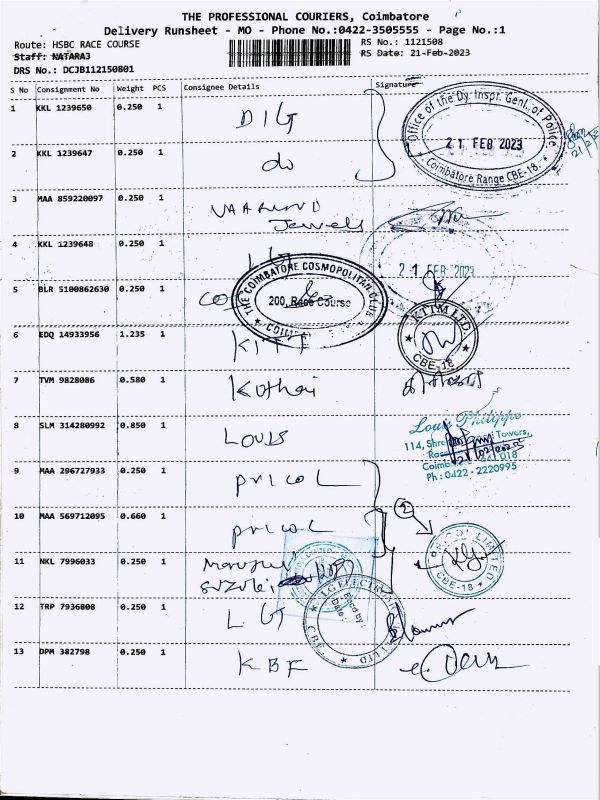 THE PROFESSIONAL COURIERS, Coimbatore
Delivery Runsheet - MO - Phone No.:0422-3505555 - Page No.:1
Route: HSBC RACE COURSE
RS No.: 1121508
Staff: NATARAJ
RS Date: 21-Feb-2023
DRS No.: DCJB112150801
S No Consignment No Weight PCS Consignee Details Signature
1 KKL 1239650 0.250 1 DIG
Office of the Dy. Inspr. Genl. of Police
21 FEB 2023
Coimbatore Range CBE-18.
2 KKL 1239647 0.250 1 do
3 MAA 859220097 0.250 1 Jewels
4 KKL 1239648 0.250 1 LG
21 FEB 2023
5 BLR 5100862630 0.250 1
THE COIMBATORE COSMOPOLITAN CLUB
200, Race Course
6 EDQ 14933956 1.235 1
LTD
CBE-18
7 TVM 9828086 0.580 1 Kothari
8 SLM 314280992 0.850 1 LOUIS
Louis Philippe
Towers,
641 018
Ph : 0422 - 2220995
9 MAA 296727933 0.250 1 pricol
10 MAA 569712095 0.660 1 pricol
2
LIMITED
CBE-18
11 NKL 7996033 0.250 1 maruthi
suzuki
12 TRP 7936808 0.250 1 LG
13 DPM 382798 0.250 1 KBF